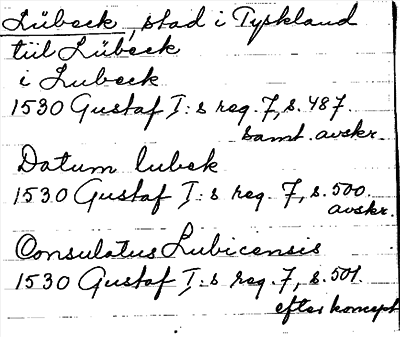 Lübeck, stad i Tyskland
till Lübeck
i Lubeck
1530 Gustaf I:s reg. 7, s. 487.
samt. avskr.
Datum lubek
1530 Gustaf I:s reg. 7, s. 500.
avskr.
Consulatus Lubicensis
1530 Gustaf I:s reg. 7, s. 501.
efter koncept